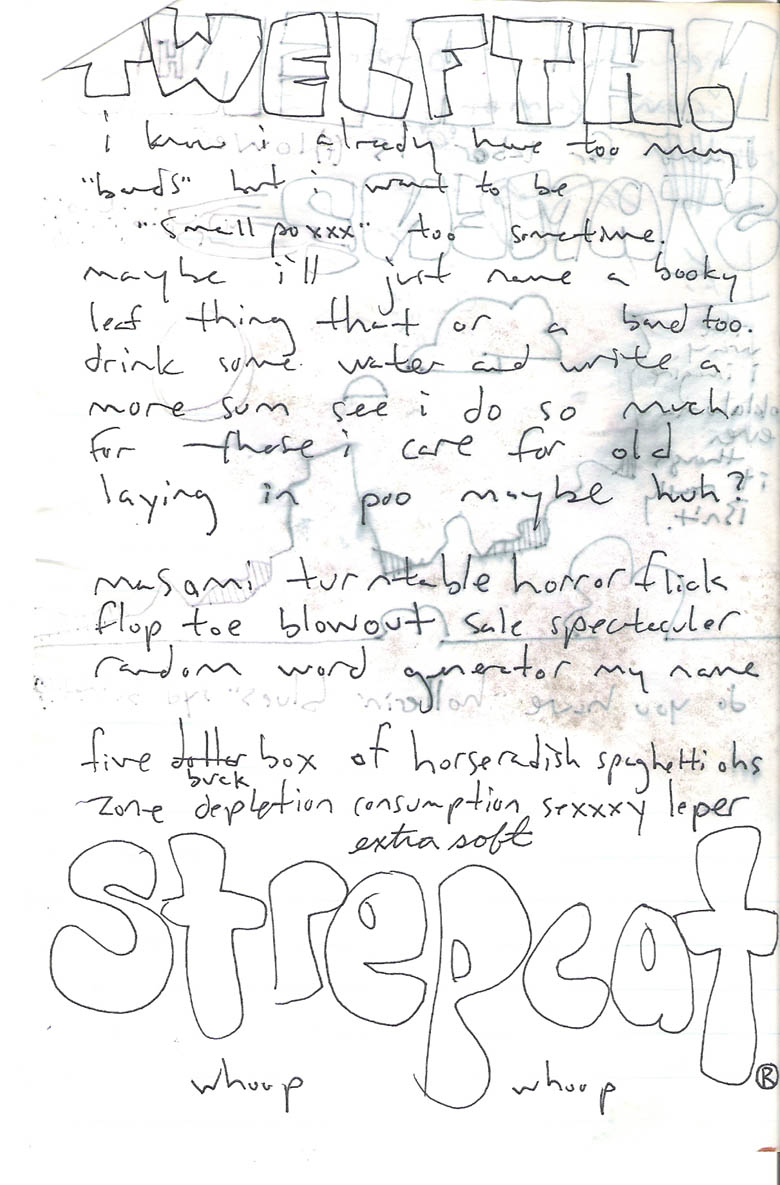 TWELFTH.
i know i already have too many
"bands" but i want to be
"small poxxx" too sometime.
maybe i'll just name a booky
leaf thing that or a band too.
drink some water and write a
more sum see i do so much
for those i care for old
laying in poo maybe huh?
masami turntable horror flick
flop toe blowout sale spectacular
random word generator my name
five dollar box of horseradish spaghettiohs
buck
zone depletion consumption sexxxy leper
extra soft
strepcat
®
whoop whoop